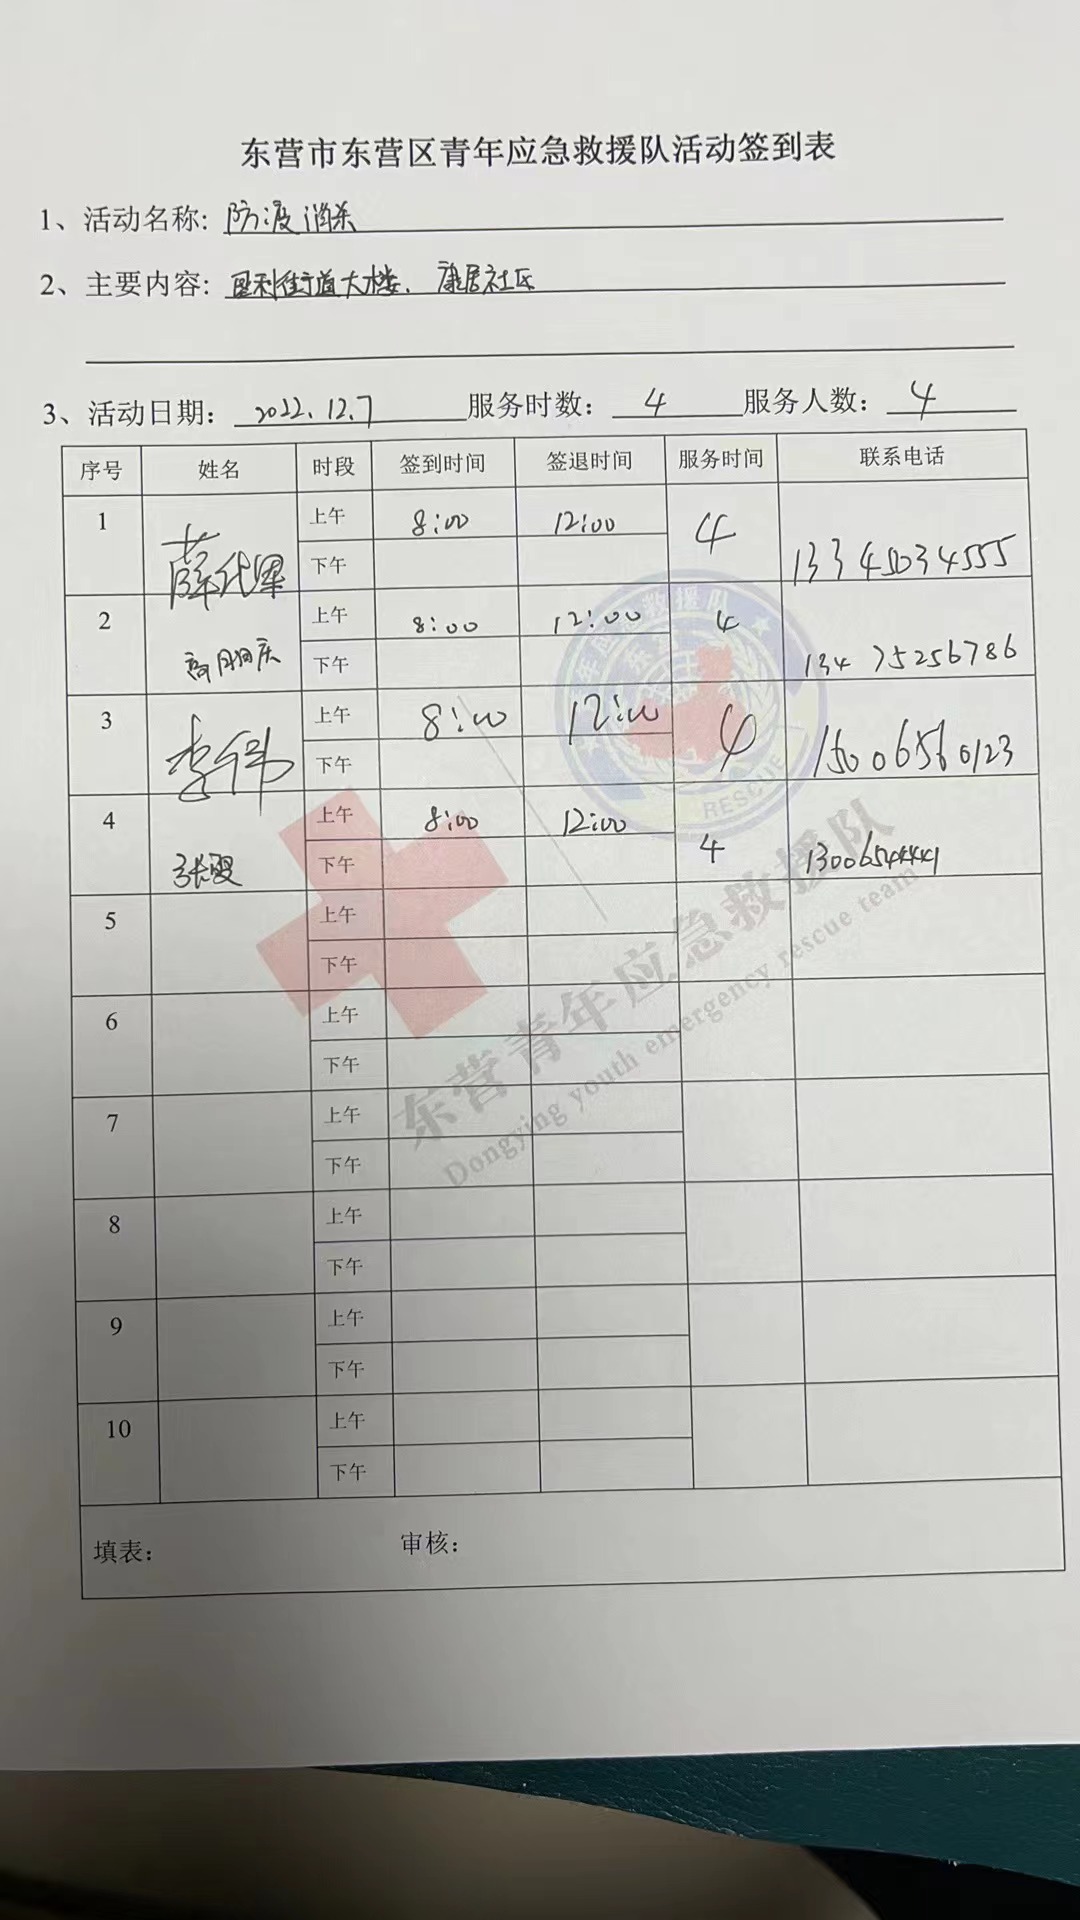 东营市东营区青年应急救援队活动签到表
1、活动名称: 防疫消杀
2、主要内容: 胜利街道大楼、康居社区
3、活动日期: 2022.12.7 服务时数: 4 服务人数: 4
序号 姓名 时段 签到时间 签退时间 服务时间 联系电话
1 上午 8:00 12:00 4 13345034555
下午
2 高朋庆 上午 8:00 12:00 4 13475256786
下午
3 李伟 上午 8:00 12:00 4 15006560123
下午
4 上午 8:00 12:00 4 13006544441
下午
5 上午
下午
6 上午
下午
7 上午
下午
8 上午
下午
9 上午
下午
10 上午
下午
填表: 审核:
东营青年应急救援队
Dongying youth emergency rescue team
RESCUE